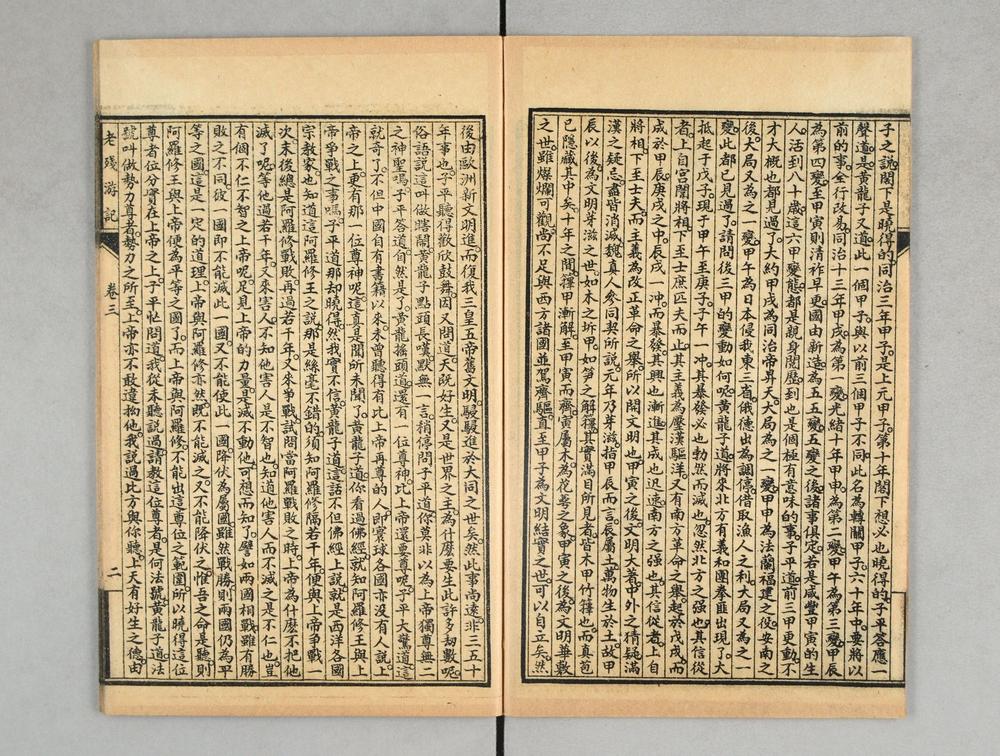 子之說閣下是曉得的同治三年甲子是上元甲子第十年閣下想必也曉得的子平答應一
聲道是黃龍子又道此一個甲子與以前三個甲子不同此名為轉關甲子六十年中要將以
前的事全行改易同治十三年甲戌為第一變光緒十年甲申為第二變甲午為第三變甲辰
為第四變至甲寅則清祚早更國由新造為五五變五變之後諸事俱定若是咸豐甲寅的生
人活到八十歲這六甲變態都是親身閱歷到也是個極有意味的事子平道前三甲更動不
才大概也都見過了大約甲戌為同治帝昇天大局為之一變甲申為法蘭福建之役安南之
後大局又為之一變甲午為日本侵我東三省俄德出為調停借取漁人之利大局又為之一
變此都已見過了請問後三甲的變動如何呢黃龍子道將來北方有義和團拳匪出現了大
抵起于戊子現于甲午至庚子子午一冲其暴發必也勃然而滅也忽然北方之强也其信從
者上自宮闈將相下至士庶匹夫而止其主義為壓漢驅洋又有南方革命之舉起於戊戌而
成於甲辰庚戌之中辰戌一冲而暴發其興也漸進其成也迅速南方之强也其信從者上自
將相下至士夫而主義為改正革命之舉所以開文明也甲寅之後文明大著中外之猜疑滿
漢之疑忌盡皆消滅魏真人參同契所說元年乃芽滋指甲辰而言辰屬土萬物生於土故甲
辰以後為文明芽滋之世如木之坼甲如笋之解籜其實滿目所見者皆木甲竹籜也而真苞
已隱藏其中矣十年之間籜甲漸解至甲寅而齊寅屬木為花萼之象甲寅之後為文明華敷
之世雖燦爛可觀尚不足與西方諸國並駕齊驅直至甲子為文明結實之世可以自立矣然
後由歐洲新文明進而復我三皇五帝舊文明駸駸進於大同之世矣然此事尚遠非三五十
年事也子平聽得歡欣鼓舞因又問道天既好生又是世界之主為什麼要生此許多劫數呢
俗語說這叫做瞎鬧黃龍子點頭長嘆默無一言稍停問子平道你莫非以為上帝獨尊無二
之神聖嗎子平答道自然是了黃龍搖頭道還有一位尊神比上帝還要尊呢子平大驚道這
就奇了不但中國自有書籍以來未曾聽得有比上帝再尊的人即寰球各國亦没有人說上
帝之上更有那一位尊神呢這真是聞所未聞了黃龍子道你看過佛經就知阿羅修王與上
帝爭戰之事嗎子平道那却曉得然我實不信黃龍子道這話不但佛經上說就是西洋各國
宗教家也知道這阿羅修王之說那是絲毫不錯的須知阿羅修隔若干年便與上帝爭戰一
次末後總是阿羅修戰敗再過若干年又來爭戰試問當阿羅戰敗之時上帝為什麼不把他
滅了呢等他過若干年又來害人不知他害人是不智也知道他害人而不滅之是不仁也豈
有個不仁不智之上帝呢足見上帝的力量是滅不動他可想而知了譬如兩國相戰雖有勝
敗之不同彼一國即不能滅此一國又不能使此一國降伏為屬國雖然戰勝則兩國仍為平
等之國這是一定的道理上帝與阿羅修亦然既不能滅之又不能降伏之惟吾之命是聽則
阿羅修王與上帝便為平等之國了而上帝與阿羅修不能出這尊位之範圍所以曉得這位
尊者位分實在上帝之上子平忙問道我從未聽説過請教這位尊者是何法號黃龍子道法
號叫做勢力尊者勢力之所至上帝亦不敢違拗他我説過比方與你聽上天有好生之德由
老殘游記
卷三
二